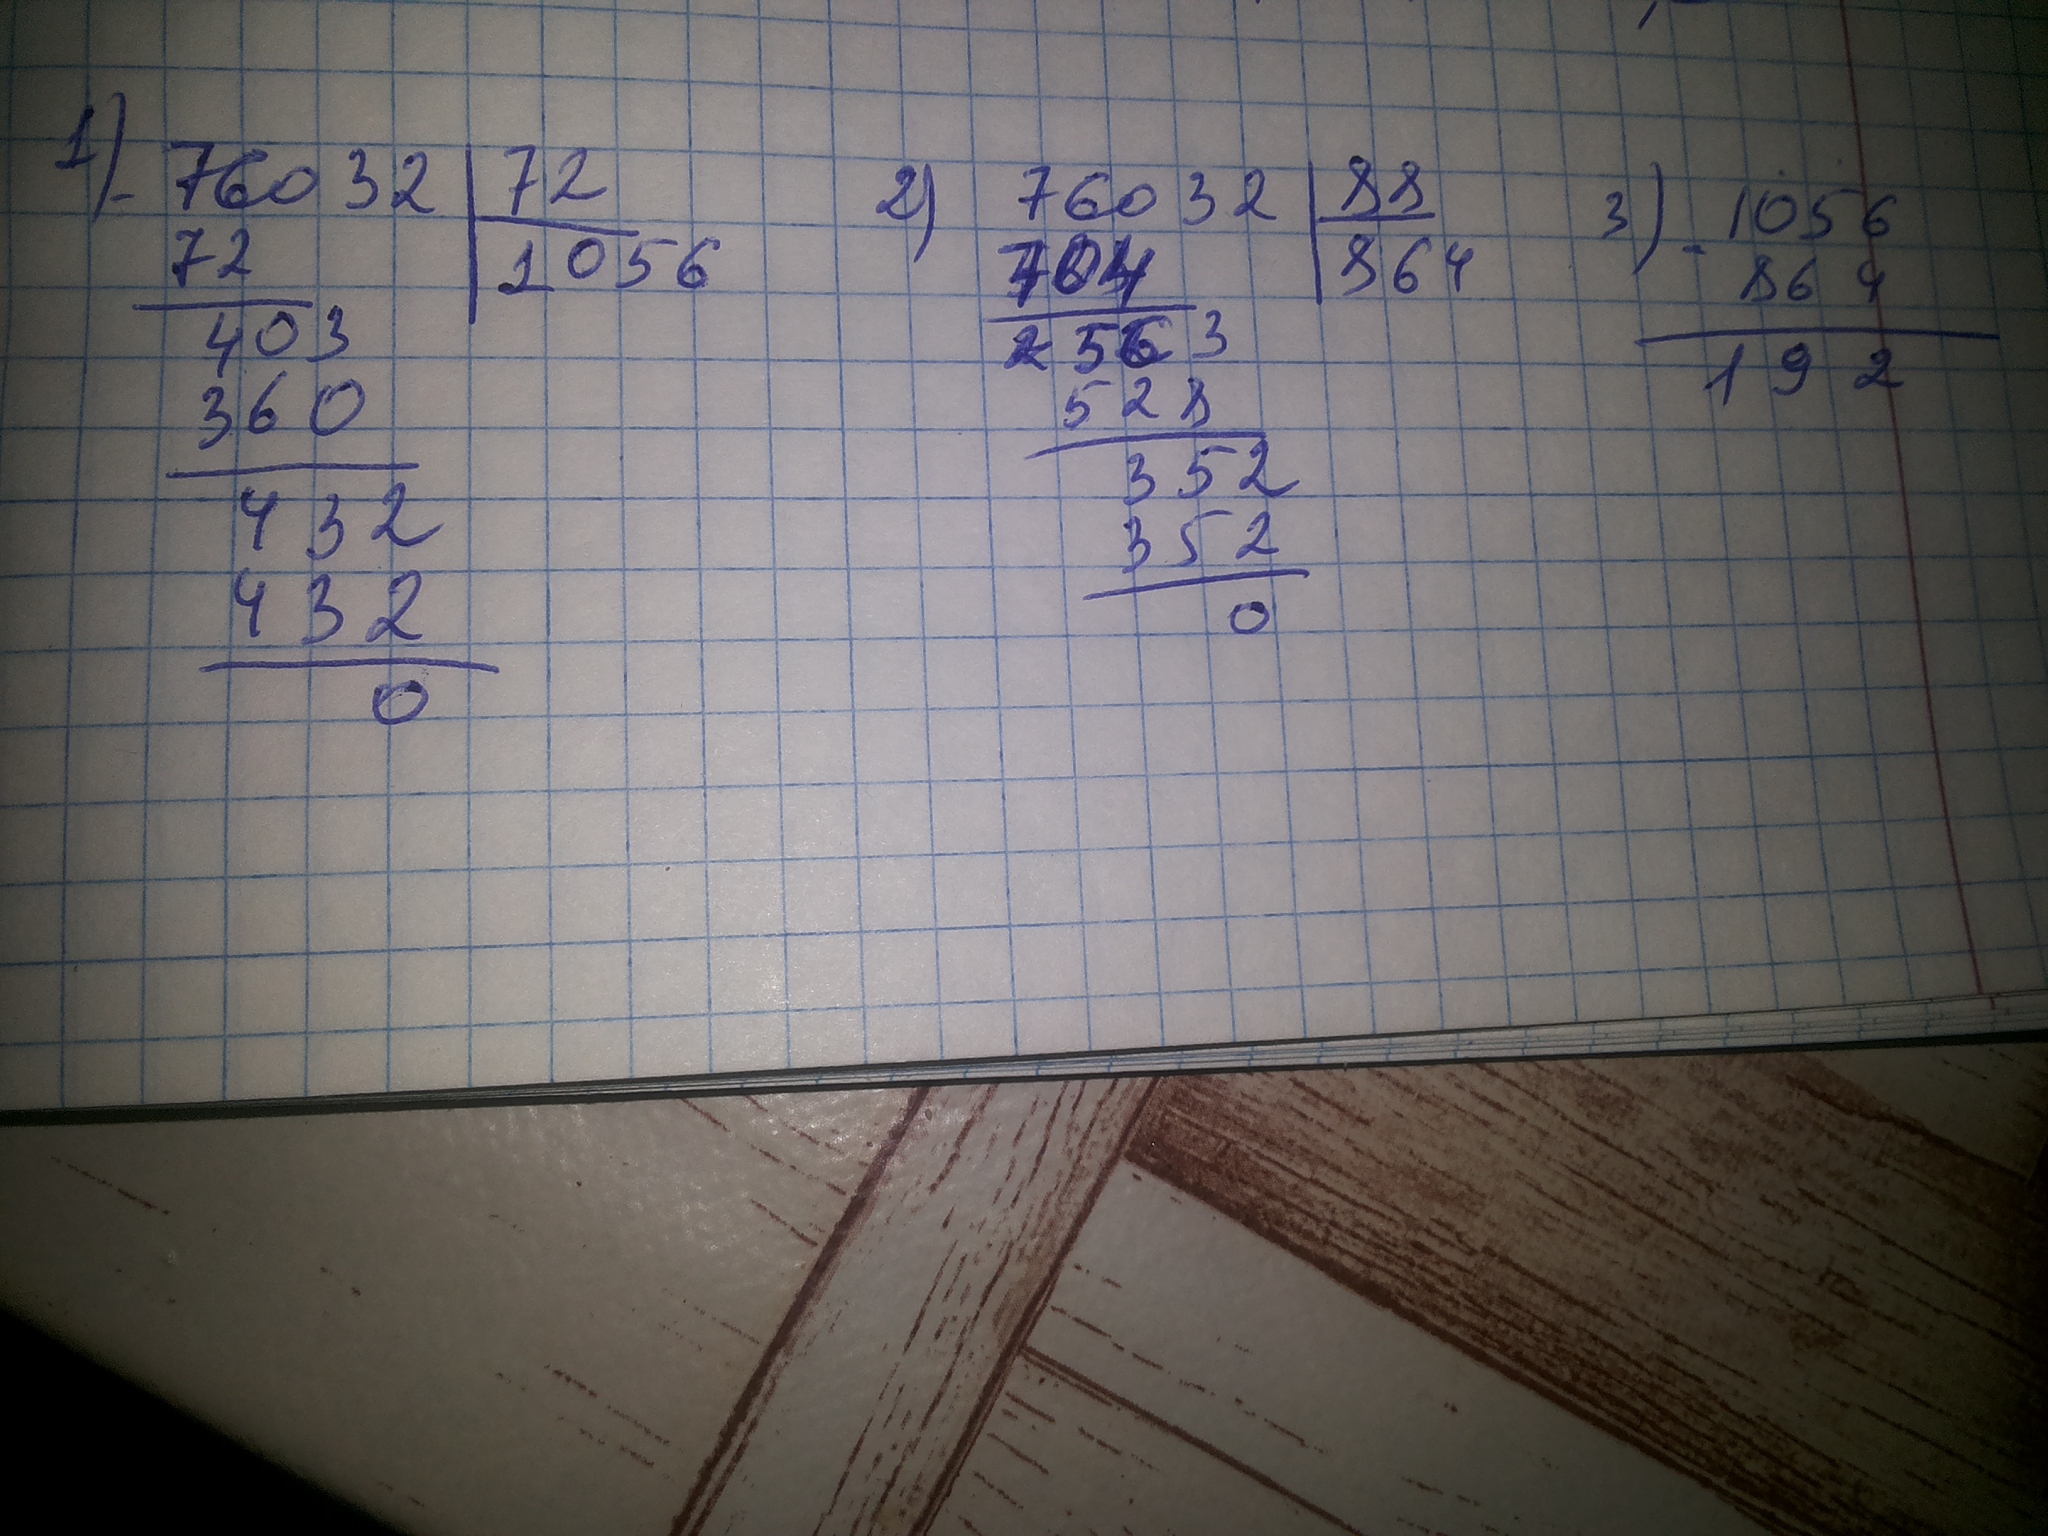 1) - 76032 | 72
72 | 1056
403
360
432
432
0
2) 76032 | 88
704 | 864
563
528
352
352
0
3) - 1056
864
192